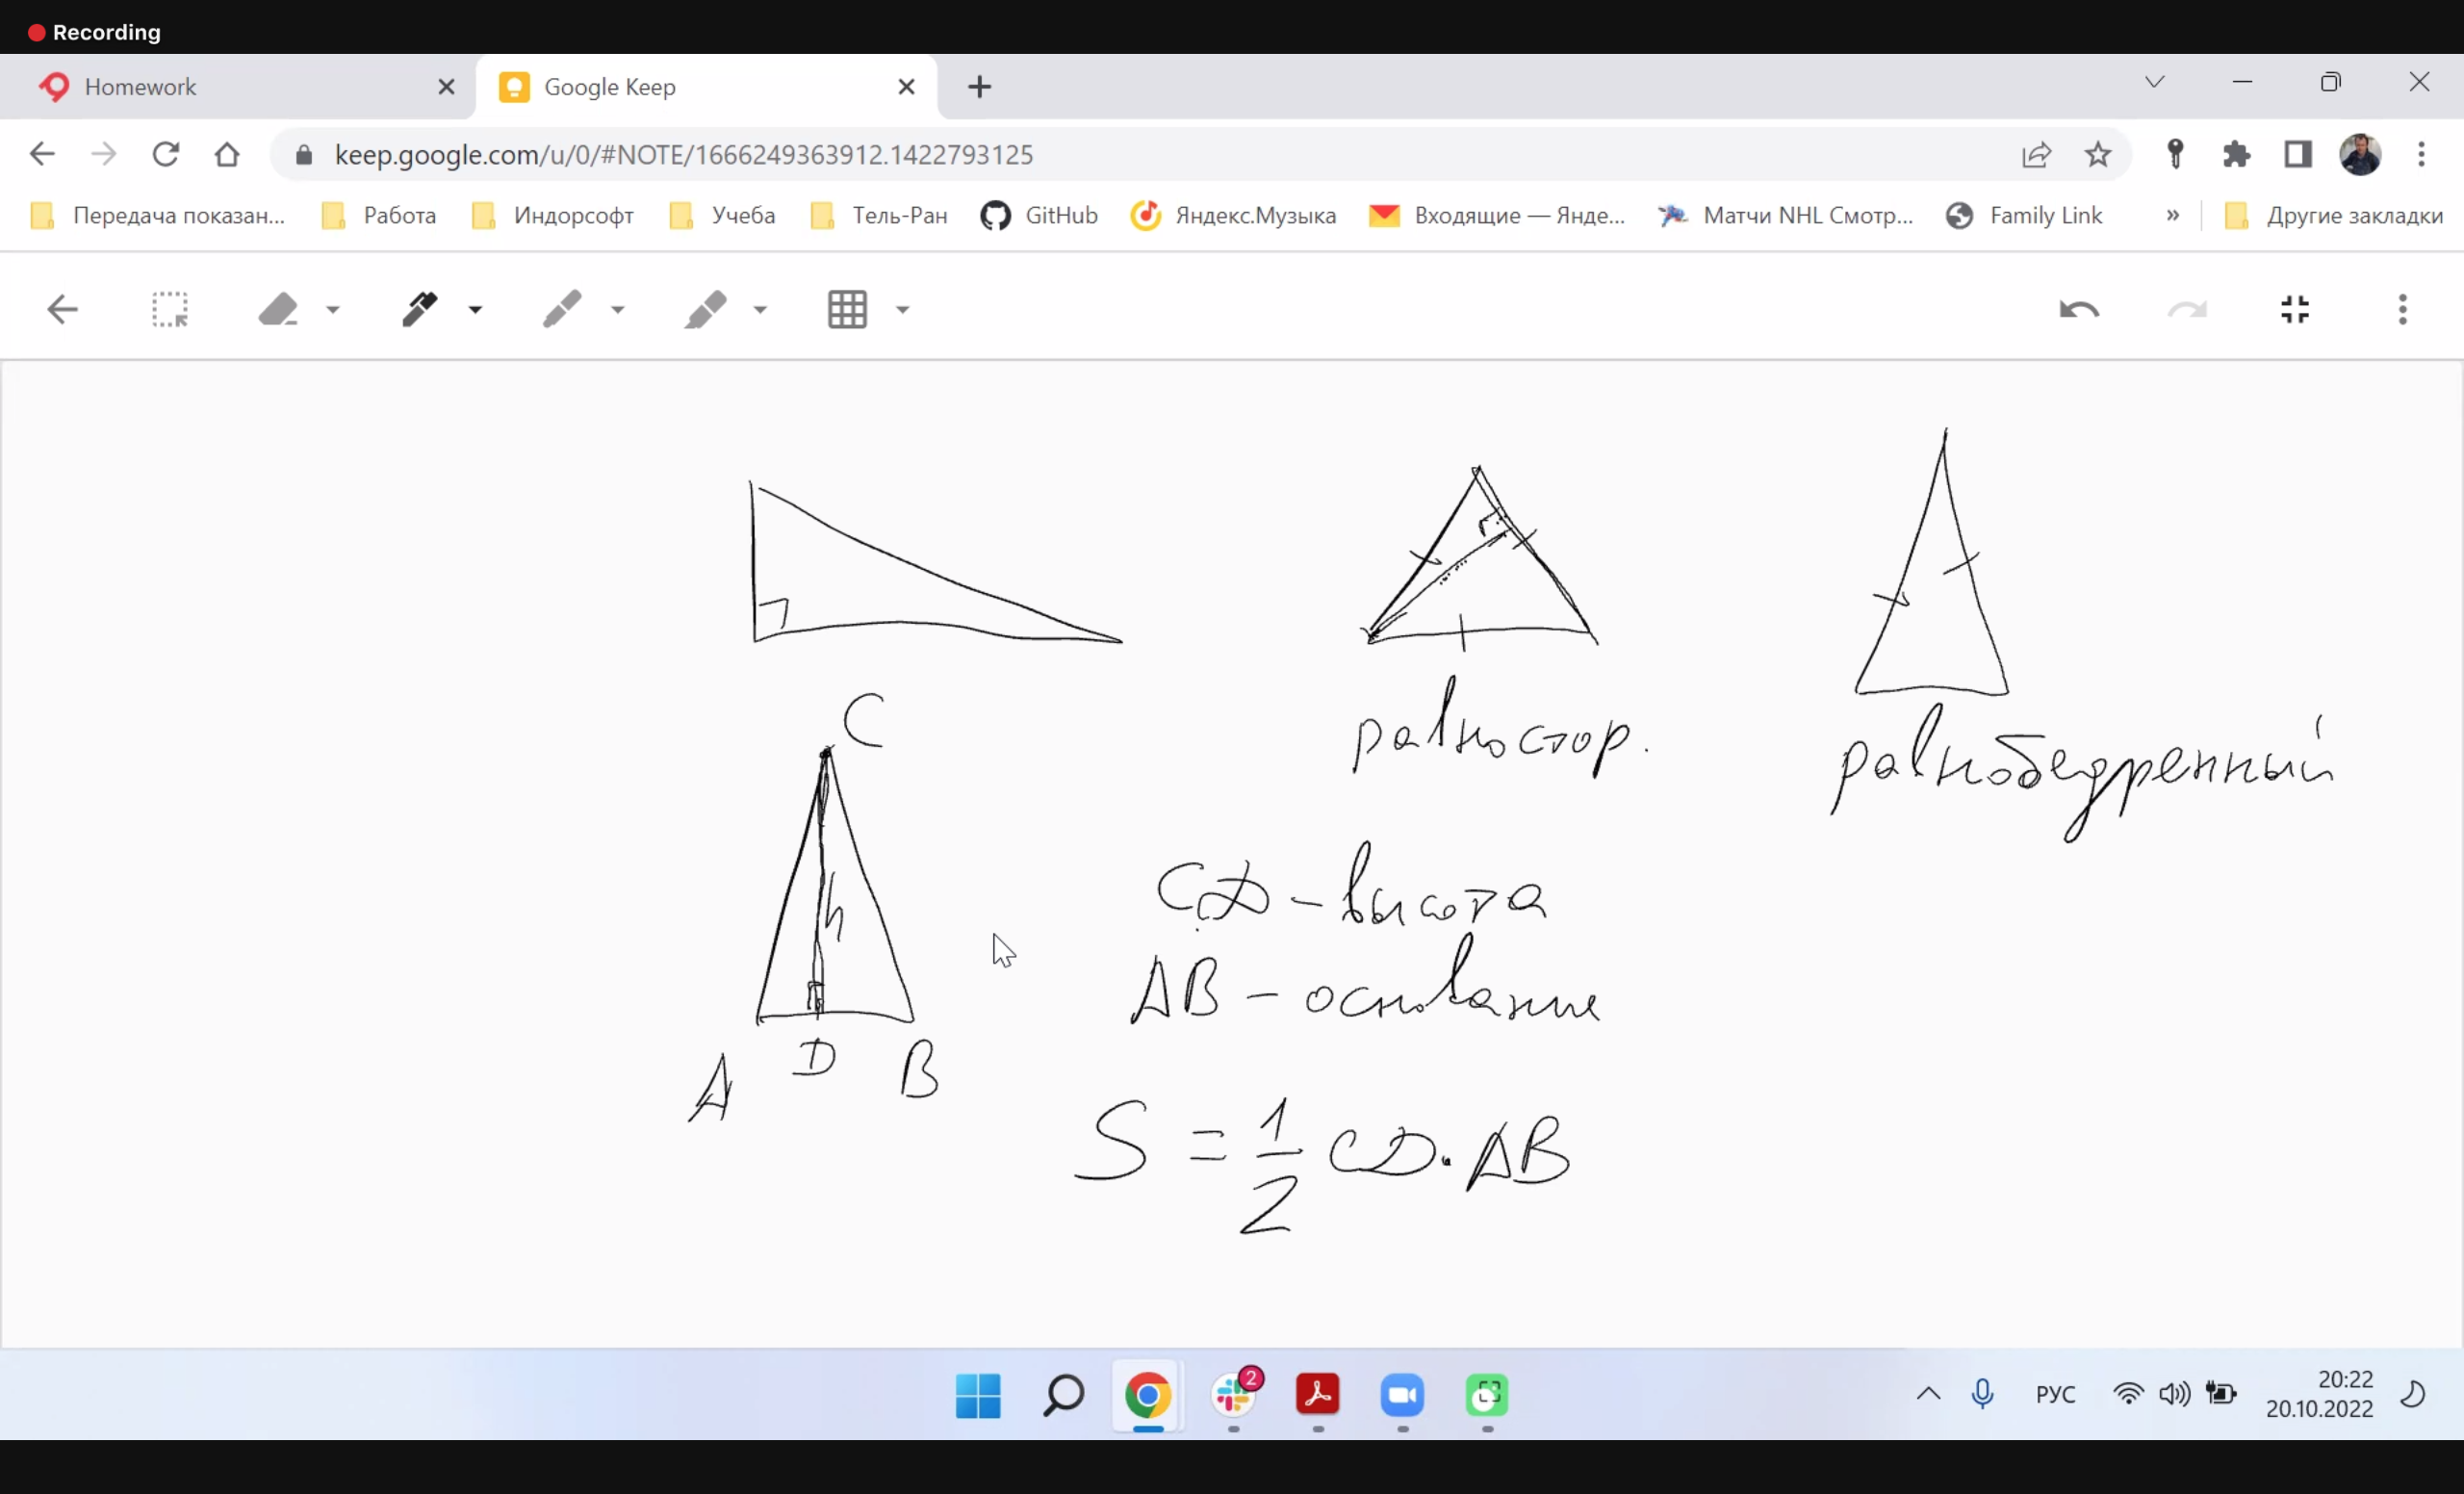 Recording
Homework
Google Keep
keep.google.com/u/0/#NOTE/1666249363912.1422793125
Передача показан...
Работа
Индорсофт
Учеба
Тель-Ран
GitHub
Яндекс.Музыка
Входящие — Янде...
Матчи NHL Смотр...
Family Link
»
Другие закладки
равностор.
равнобедренный
C
h
A
D
B
CD - высота
AB - основание
S = 1/2 CD · AB
2
РУС
20:22
20.10.2022